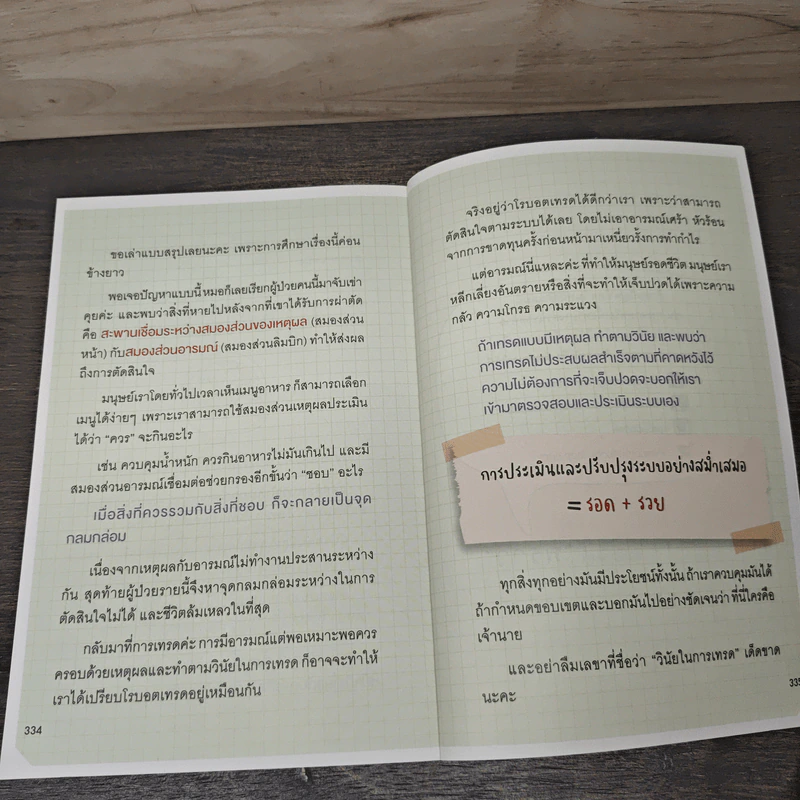 ขอเล่าแบบสรุปเลยนะคะ เพราะการศึกษาเรื่องนี้ค่อน
ข้างยาว
พอเจอปัญหาแบบนี้ หมอก็เลยเรียกผู้ป่วยคนนี้มาจับเข่า
คุยค่ะ และพบว่าสิ่งที่หายไปหลังจากที่เขาได้รับการผ่าตัด
คือ สะพานเชื่อมระหว่างสมองส่วนของเหตุผล (สมองส่วน
หน้า) กับสมองส่วนอารมณ์ (สมองส่วนลิมบิก) ทำให้ส่งผล
ถึงการตัดสินใจ
มนุษย์เราโดยทั่วไปเวลาเห็นเมนูอาหาร ก็สามารถเลือก
เมนูได้ง่ายๆ เพราะเราสามารถใช้สมองส่วนเหตุผลประเมิน
ได้ว่า “ควร” จะกินอะไร
เช่น ควบคุมน้ำหนัก ควรกินอาหารไม่มันเกินไป และมี
สมองส่วนอารมณ์เชื่อมต่อช่วยกรองอีกขั้นว่า “ชอบ” อะไร
เมื่อสิ่งที่ควรรวมกับสิ่งที่ชอบ ก็จะกลายเป็นจุด
กลมกล่อม
เนื่องจากเหตุผลกับอารมณ์ไม่ทำงานประสานระหว่าง
กัน สุดท้ายผู้ป่วยรายนี้จึงหาจุดกลมกล่อมระหว่างในการ
ตัดสินใจไม่ได้ และชีวิตล้มเหลวในที่สุด
กลับมาที่การเทรดค่ะ การมีอารมณ์แต่พอเหมาะพอควร
ครอบด้วยเหตุผลและทำตามวินัยในการเทรด ก็อาจจะทำให้
เราได้เปรียบโรบอตเทรดอยู่เหมือนกัน
334
จริงอยู่ว่าโรบอตเทรดได้ดีกว่าเรา เพราะว่าสามารถ
ตัดสินใจตามระบบได้เลย โดยไม่เอาอารมณ์เศร้า หัวร้อน
จากการขาดทุนครั้งก่อนหน้ามาเหนี่ยวรั้งการทำกำไร
แต่อารมณ์นี่แหละค่ะ ที่ทำให้มนุษย์รอดชีวิต มนุษย์เรา
หลีกเลี่ยงอันตรายหรือสิ่งที่จะทำให้เจ็บปวดได้เพราะความ
กลัว ความโกรธ ความระแวง
ถ้าเทรดแบบมีเหตุผล ทำตามวินัย และพบว่า
การเทรดไม่ประสบผลสำเร็จตามที่คาดหวังไว้
ความไม่ต้องการที่จะเจ็บปวดจะบอกให้เรา
เข้ามาตรวจสอบและประเมินระบบเอง
การประเมินและปรับปรุงระบบอย่างสม่ำเสมอ
= รอด + รวย
ทุกสิ่งทุกอย่างมันมีประโยชน์ทั้งนั้น ถ้าเราควบคุมมันได้
ถ้ากำหนดขอบเขตและบอกมันไปอย่างชัดเจนว่า ที่นี่ใครคือ
เจ้านาย
และอย่าลืมเลขาที่ชื่อว่า “วินัยในการเทรด” เด็ดขาด
นะคะ
335